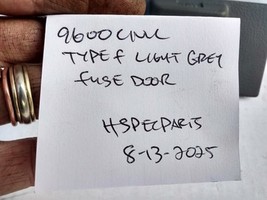 9600 CIVIC
TYPE f LIGHT GREY
fUSE DOOR
HSPECPARTS
8-13-2025